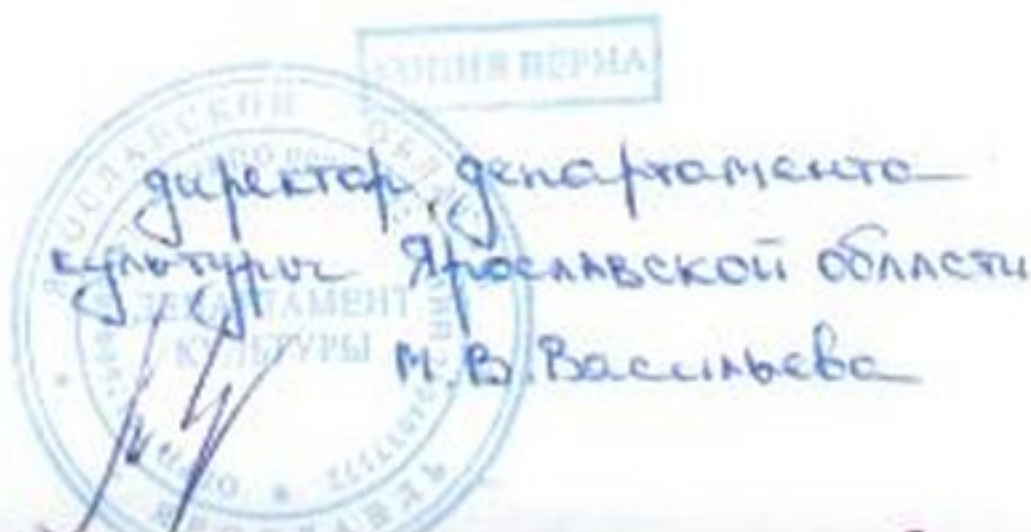 КОПИЯ ВЕРНА
директор департамента
культуры Ярославской области
М.В. Васильева
ЯРОСЛАВСКОЙ ОБЛАСТИ
ДЕПАРТАМЕНТ
КУЛЬТУРЫ